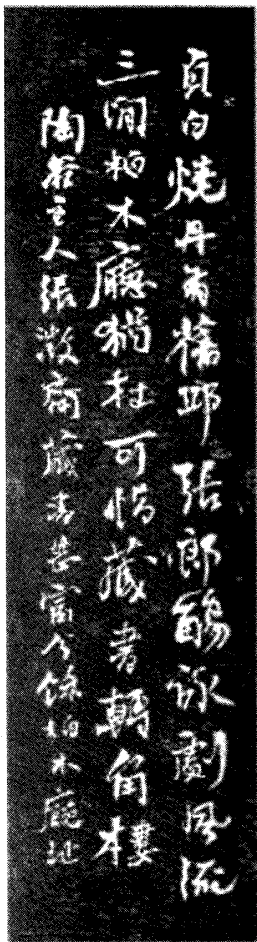 貞白燒丹有舊邱張郎觴詠劇風流
三間柏木廳猶在可惜藏書轉角樓
陶谷主人張敔齋藏書甚富今餘柏木廳址